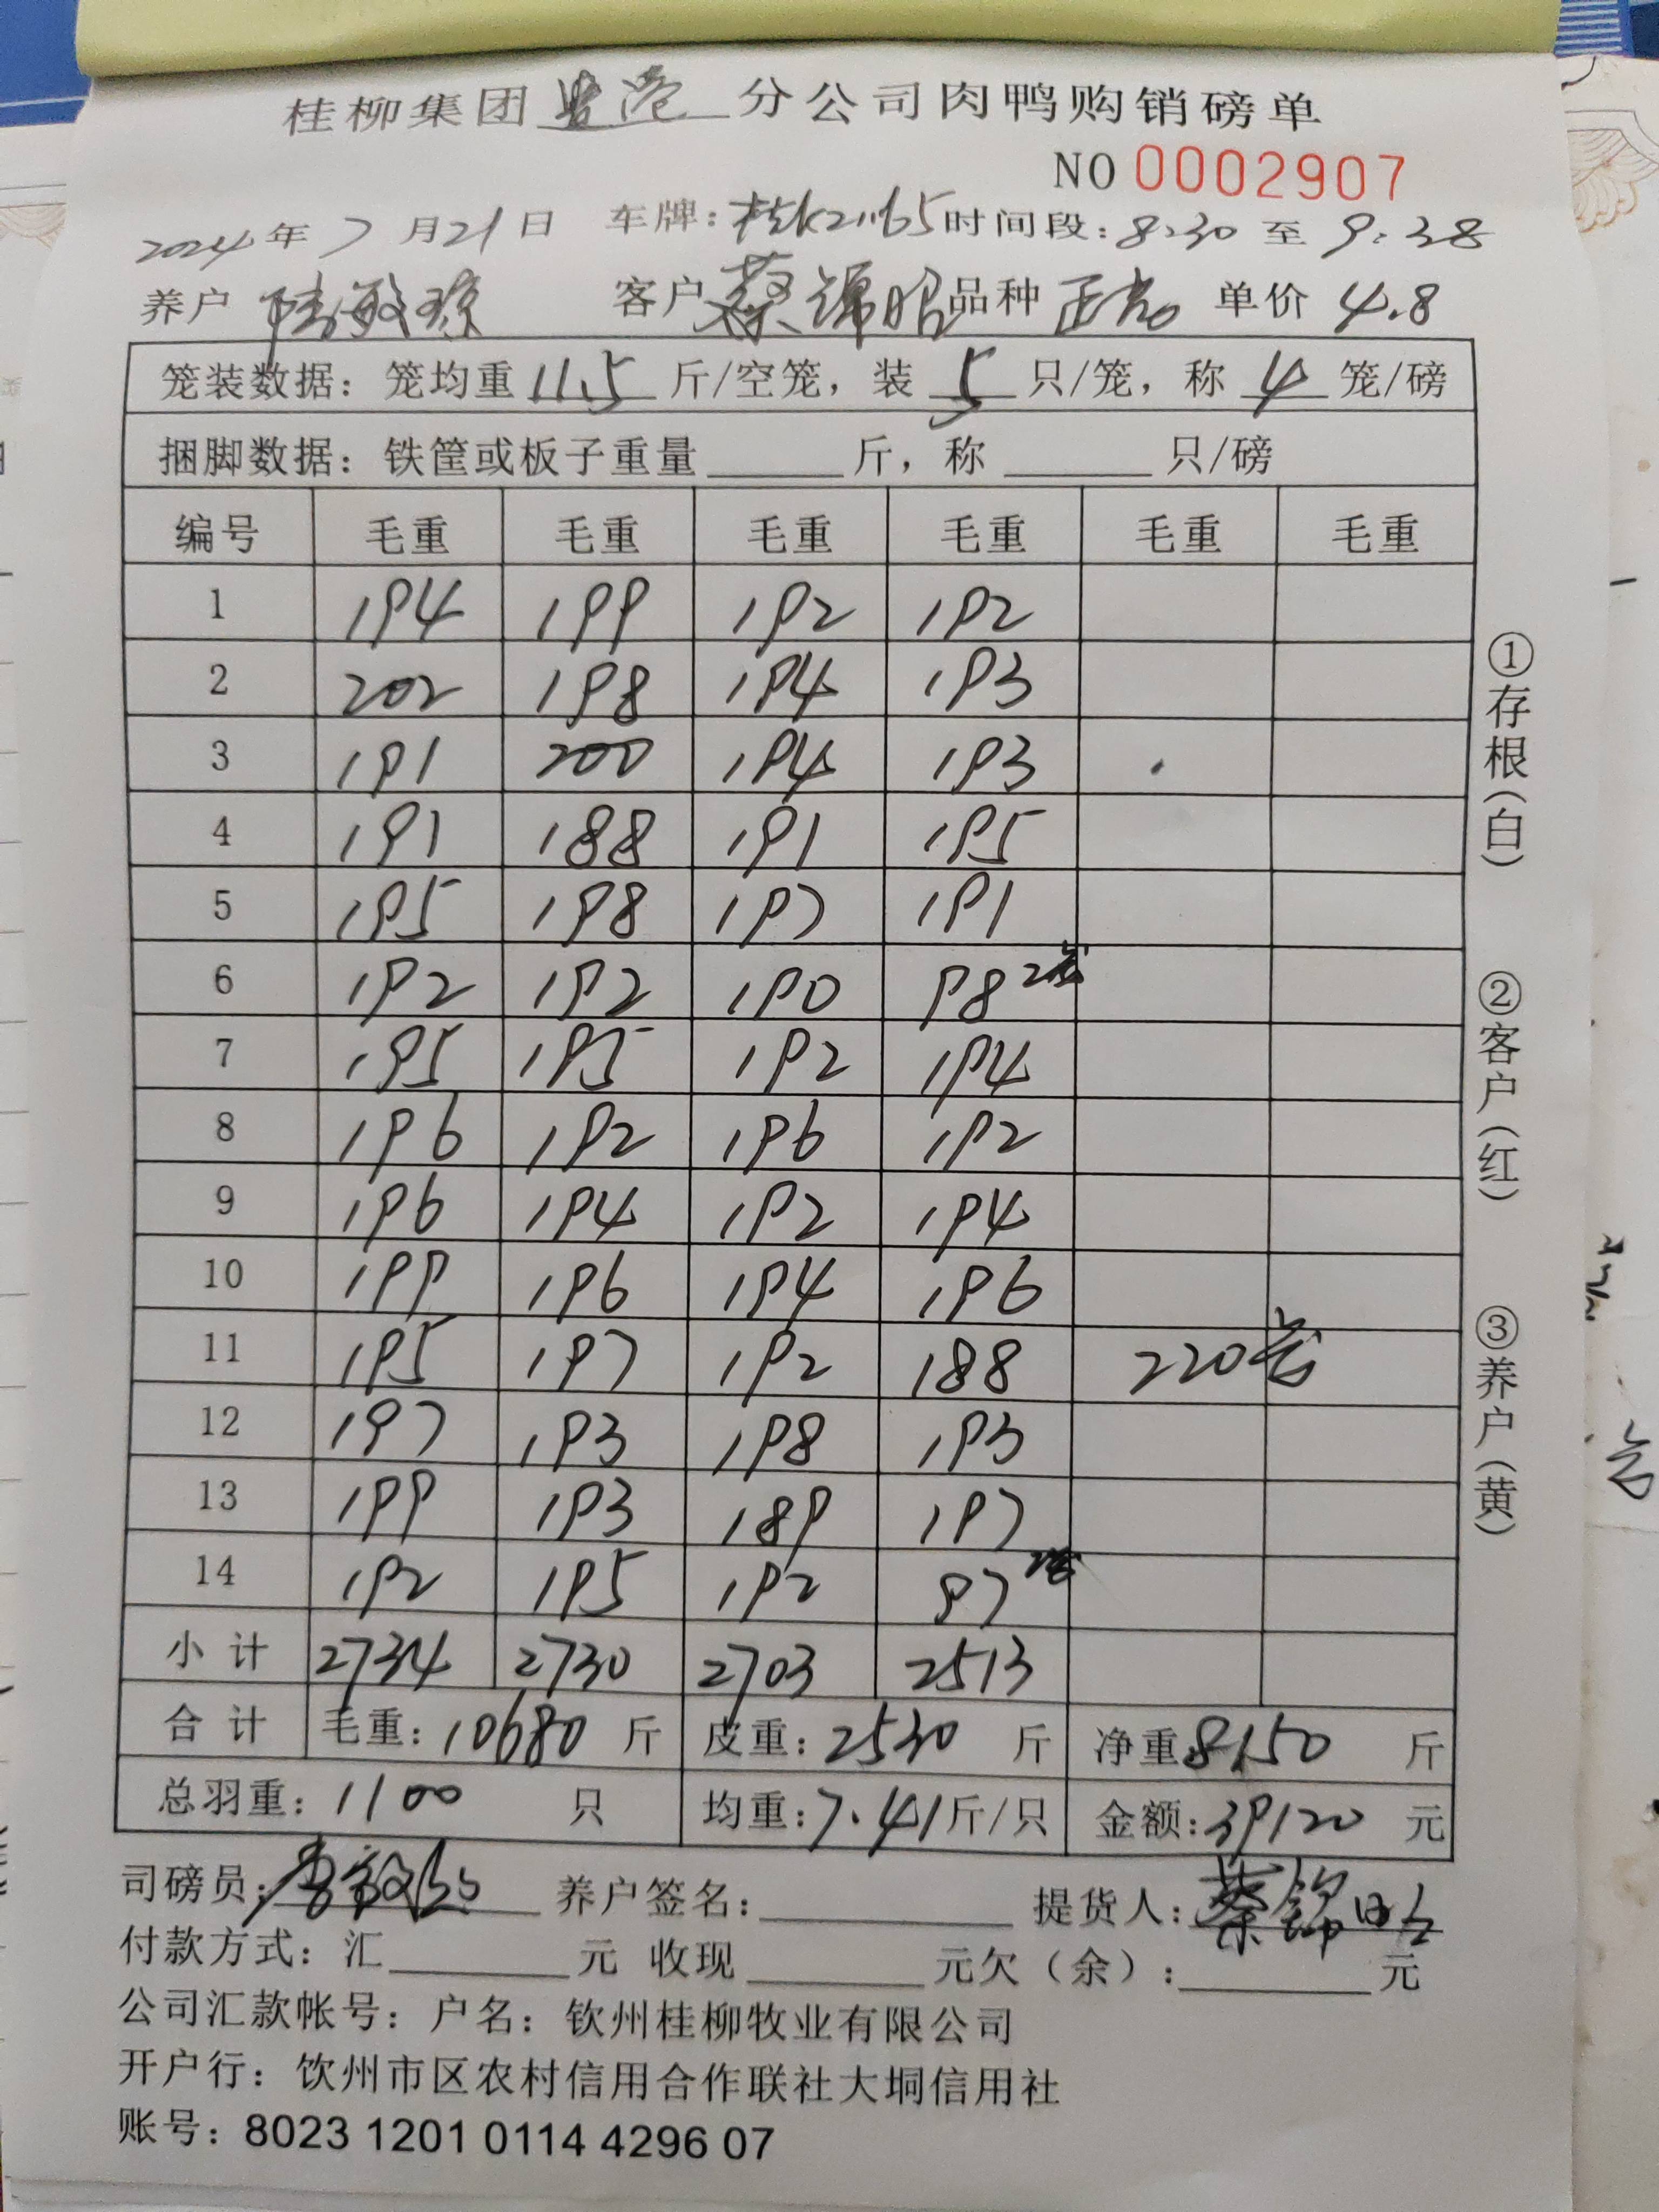 桂柳集团贵港分公司肉鸭购销磅单
NO 0002907
2024年7月21日 车牌：桂K21165 时间段：8:30 至 9:38
养户 陆敏琼 客户 蔡锦昭 品种 正常 单价 4.8
笼装数据：笼均重 11.5 斤/空笼，装 5 只/笼，称 4 笼/磅
捆脚数据：铁筐或板子重量 斤，称 只/磅
编号 毛重 毛重 毛重 毛重 毛重 毛重
1 194 199 192 192
2 202 198 194 193
3 191 200 194 193
4 191 188 191 195
5 195 198 197 191
6 192 192 190 98 2笼
7 195 195 192 194
8 196 192 196 192
9 196 194 192 194
10 199 196 194 196
11 195 197 192 188 220笼
12 197 193 198 193
13 199 193 189 197
14 192 195 192 97 2笼
小计 2734 2730 2703 2513
合计 毛重：10680 斤 皮重：2530 斤 净重 8150 斤
总羽重：1100 只 均重：7.41斤/只 金额：39120 元
司磅员： 养户签名： 提货人：蔡锦昭
付款方式：汇 元 收现 元欠（余）： 元
公司汇款帐号：户名：钦州桂柳牧业有限公司
开户行：饮州市区农村信用合作联社大垌信用社
账号：8023 1201 0114 4296 07
①存根（白）
②客户（红）
③养户（黄）